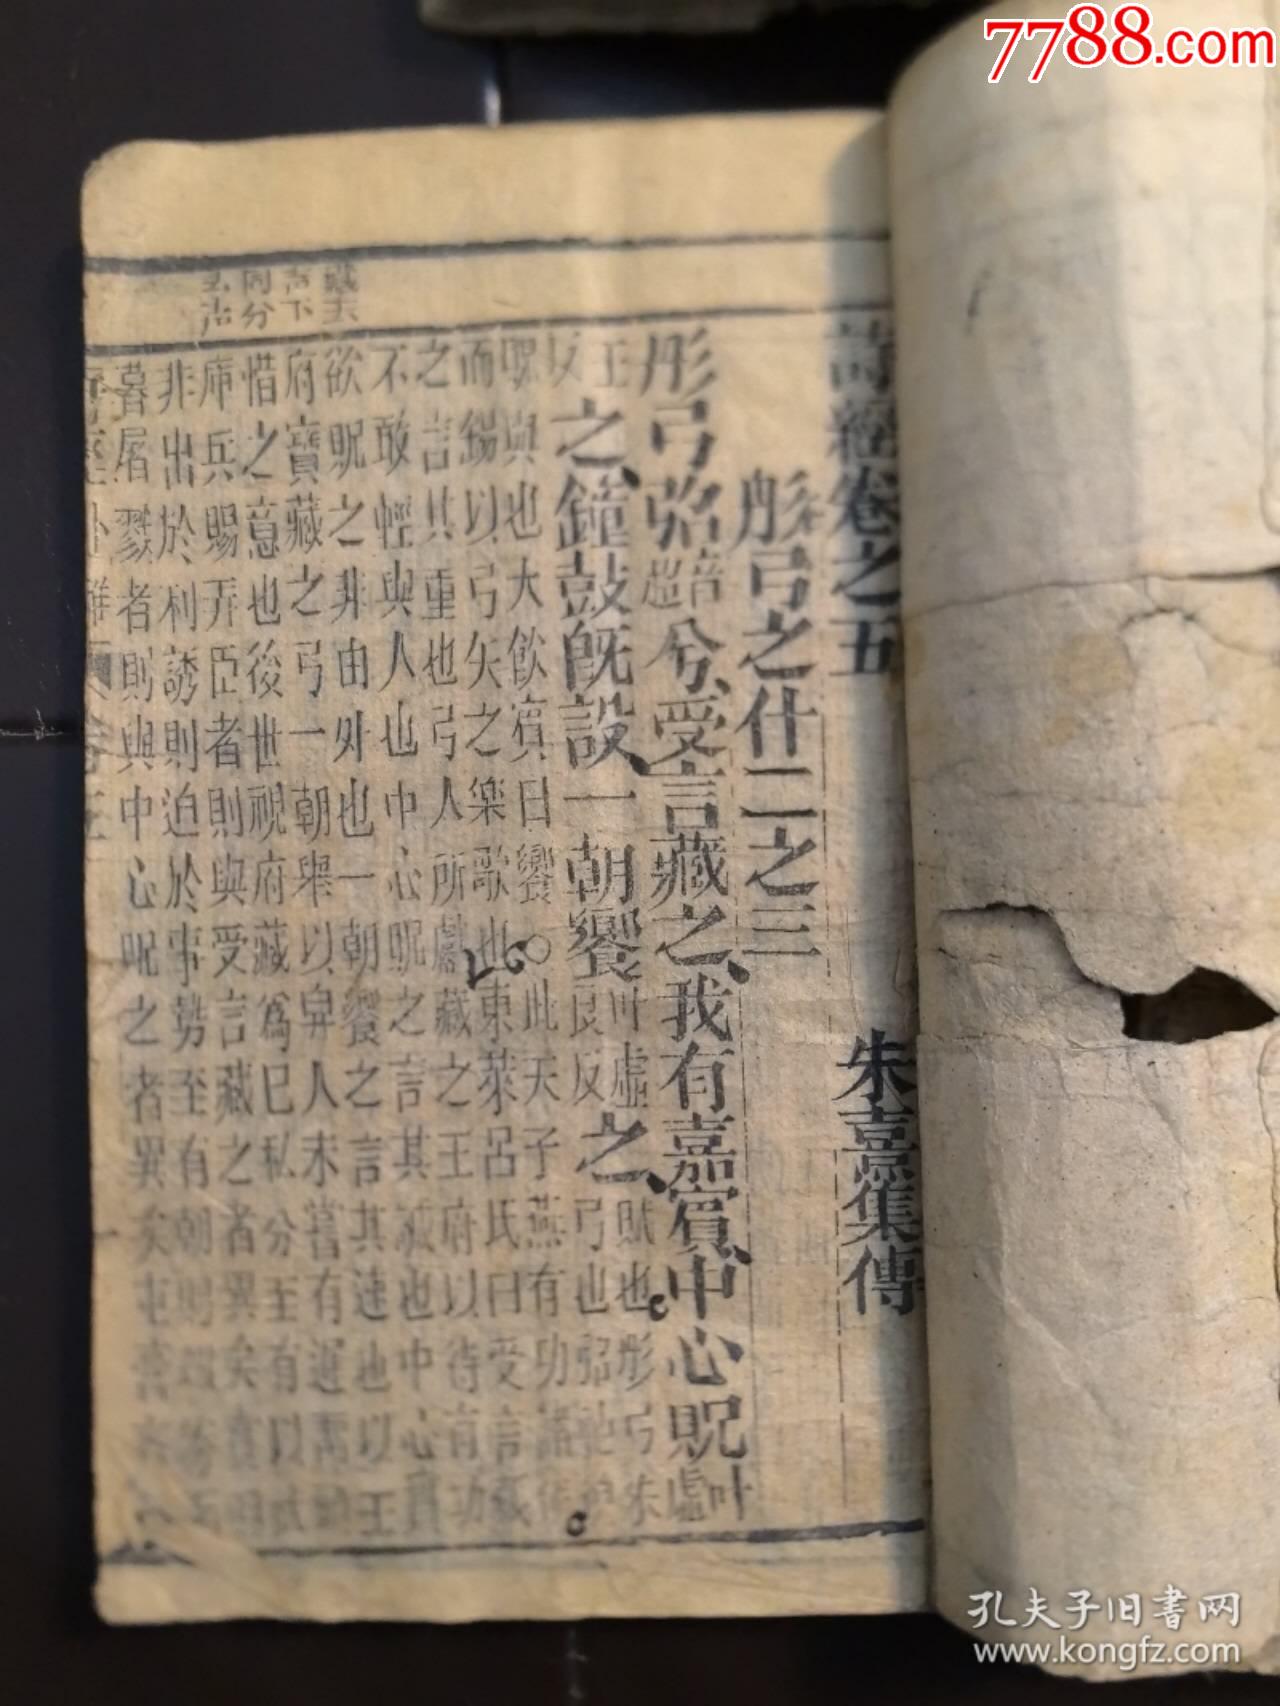 7788.com
詩經卷之五
朱熹集傳
彤弓之什二之三
彤弓弨兮、受言藏之、我有嘉賓、中心貺叶虛
王反之、鐘鼓既設、一朝饗叶虛良反之、賦也彤弓朱
弓也弨弛
貺與也大飲賓曰饗○此天子燕有功諸侯
而錫以弓矢之樂歌也東萊呂氏曰受言藏
之言其重也弓人所獻藏之王府以待有功
不敢輕與人也中心貺之言其誠也中心實
欲貺之非由外也一朝饗之言其速也以王
府寶藏之弓一朝舉以畀人未嘗有遲
惜之意也後世視府藏爲已私分至有以武
庫兵賜弄臣者則與受言藏之者異矣賞
非出於利誘則迫於事勢至有朝
暮屠戮者則與中心貺之者異矣屯膏
孔夫子旧書网
www.kongfz.com